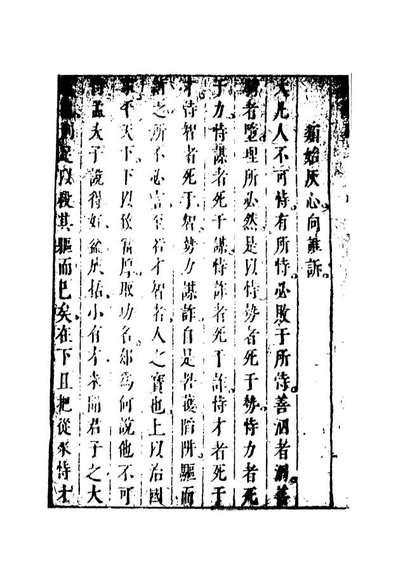 頹始灰心向誰訴
大凡人不可恃有所恃必敗于所恃善泅者溺善
騎者墮理所必然是以恃勢者死于勢恃力者死
于力恃謀者死于謀恃詐者死于詐恃才者死于
才恃智者死于智勢力謀詐自是名獲陷阱驅而
納之所不必言至若才智者人之寶也上以治國
平天下下以致富厚取功名却為何說他不可
恃孟夫子說得好盆成括小有才未聞君子之大
足以殺其軀而已矣在下且把從來恃才